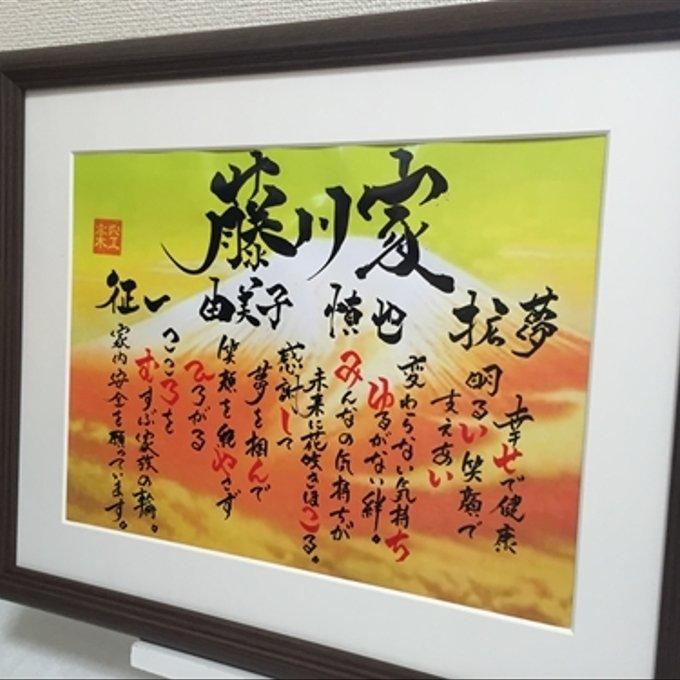 藤川家
征一 由美子 慎也 拓夢
幸せで健康
明るい笑顔で
支えあい
変わらない気持ち
ゆるがない絆。
みんなの気持ちが
未来に花咲きほこる。
感謝して
夢を
笑顔を絶やさず
ひろがる
こころを
むすぶ家族の輪。
家内安全を願っています。